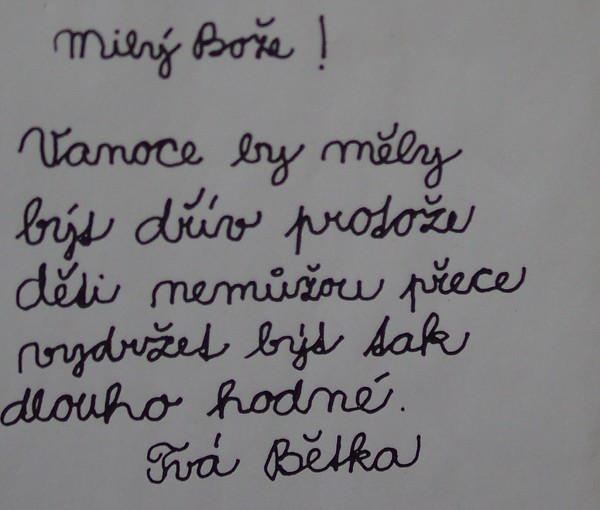 Milý Bože !
Vanoce by měly
být dřív protože
děti nemůžou přece
vydržet být tak
dlouho hodné.
Tvá Bětka